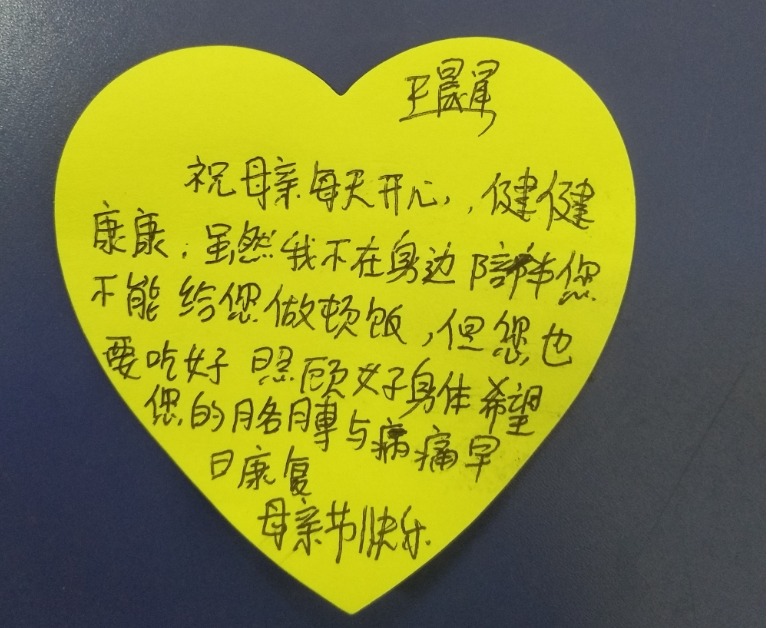 王晨
祝母亲每天开心,,健健
康康,虽然我不在身边陪伴您
不能给您做顿饭,但您也
要吃好 照顾好身体希望
您的胳膊与病痛早
日康复
母亲节快乐.